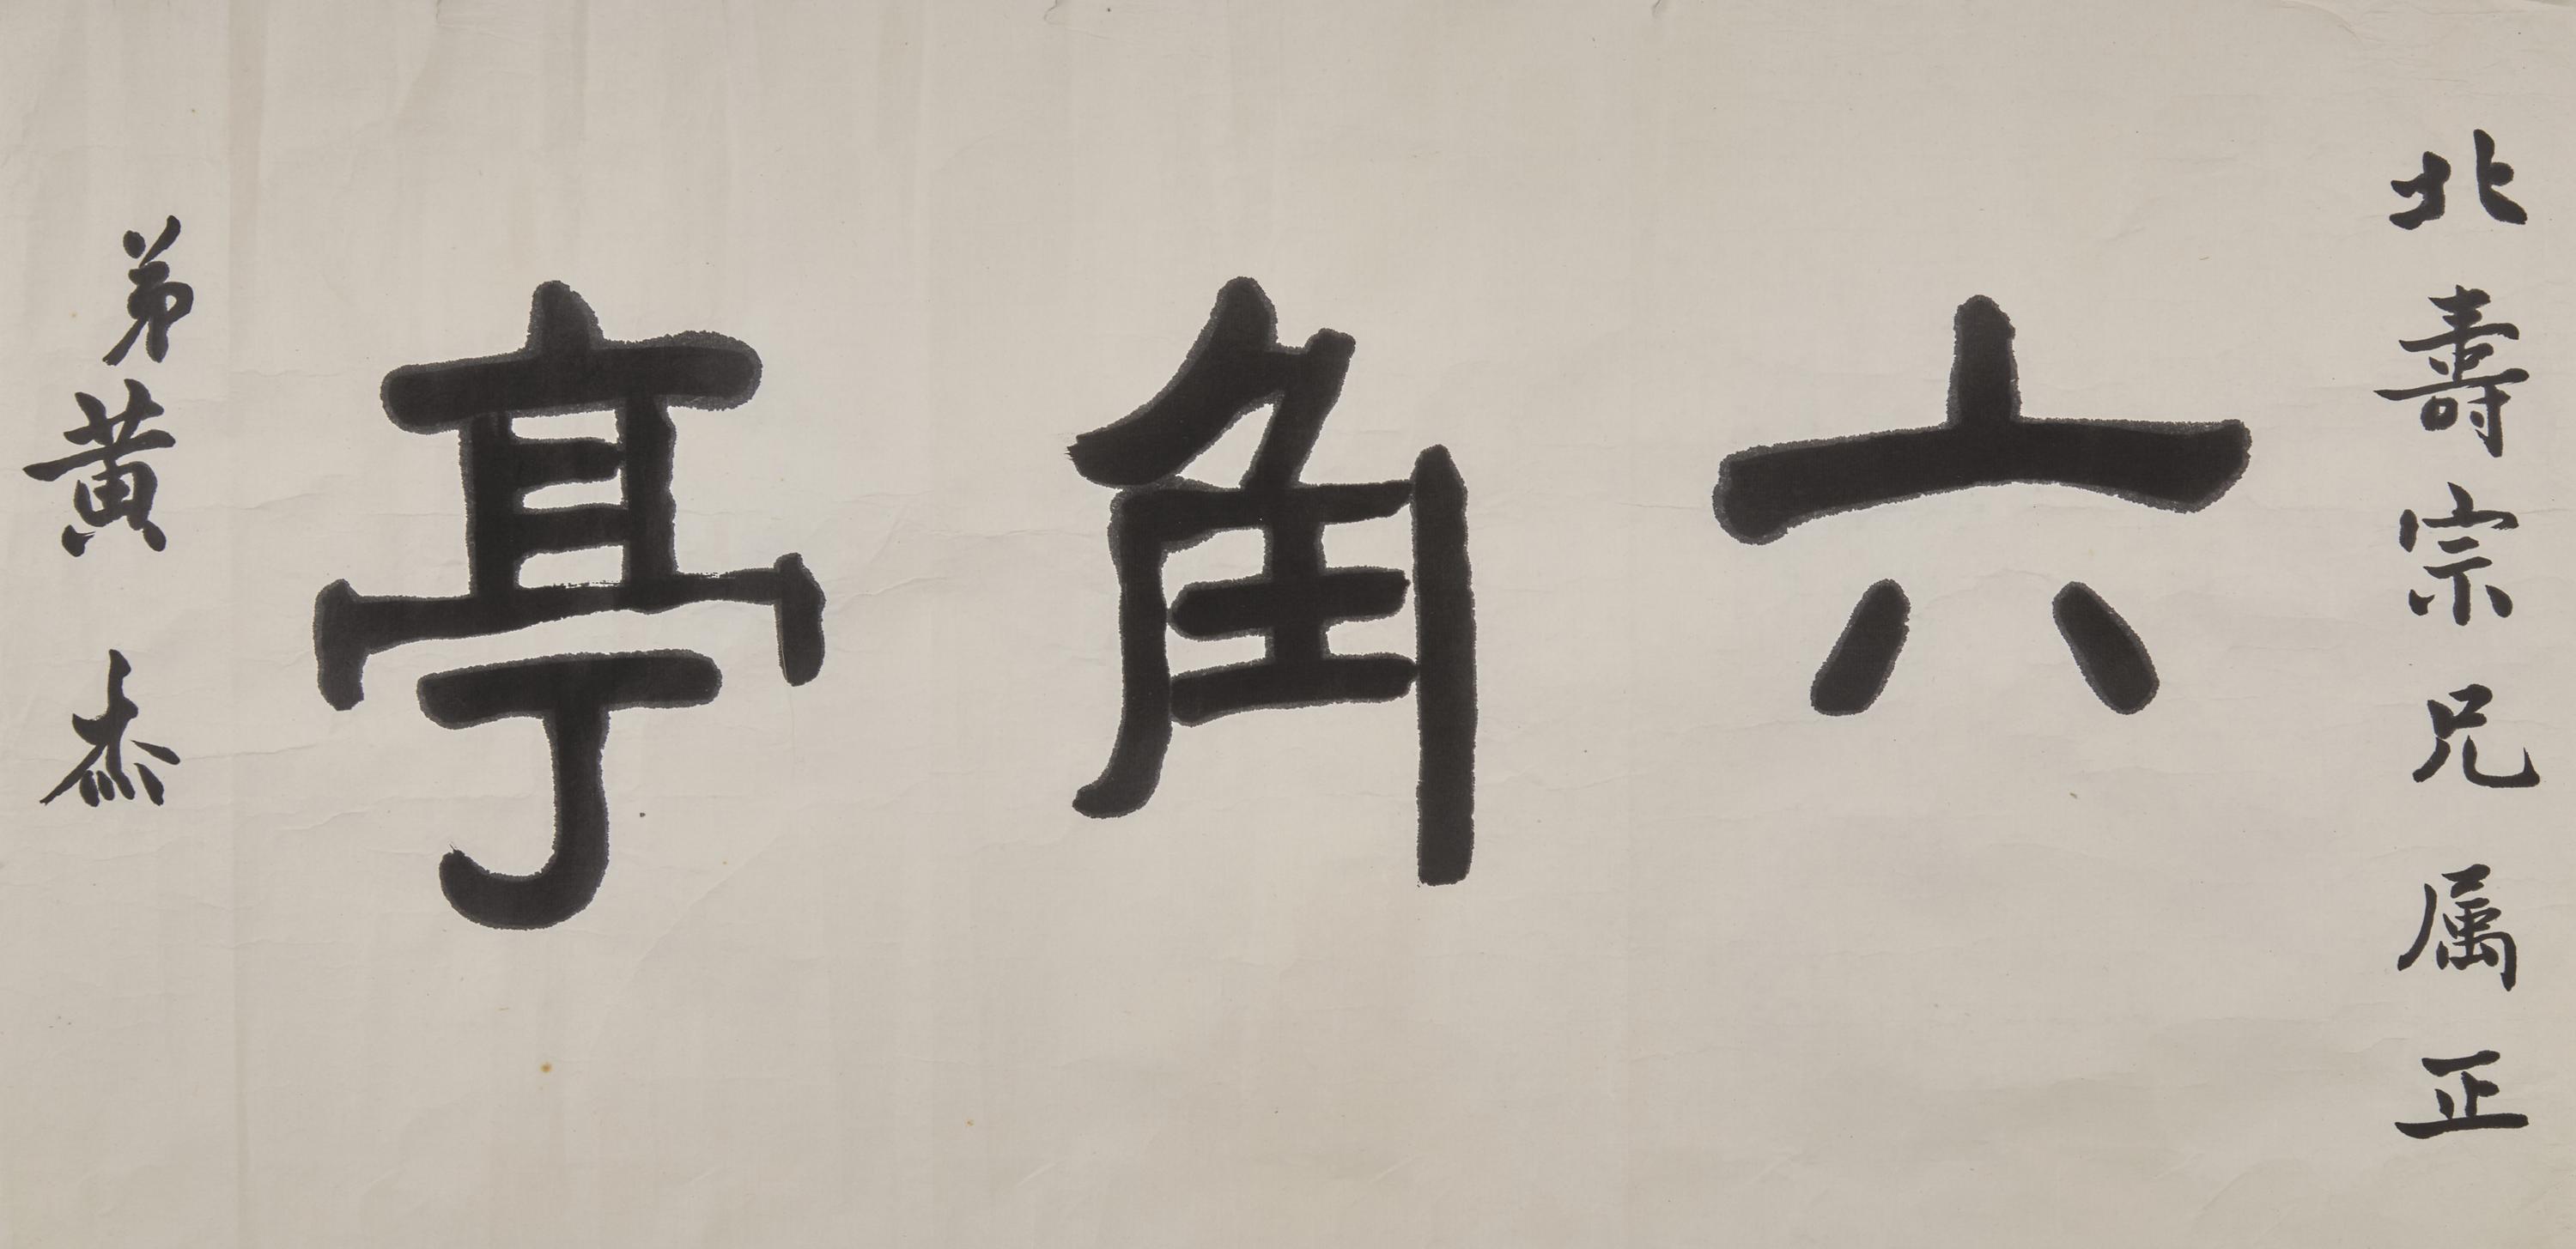 北壽宗兄属正
六角亭
弟黃杰